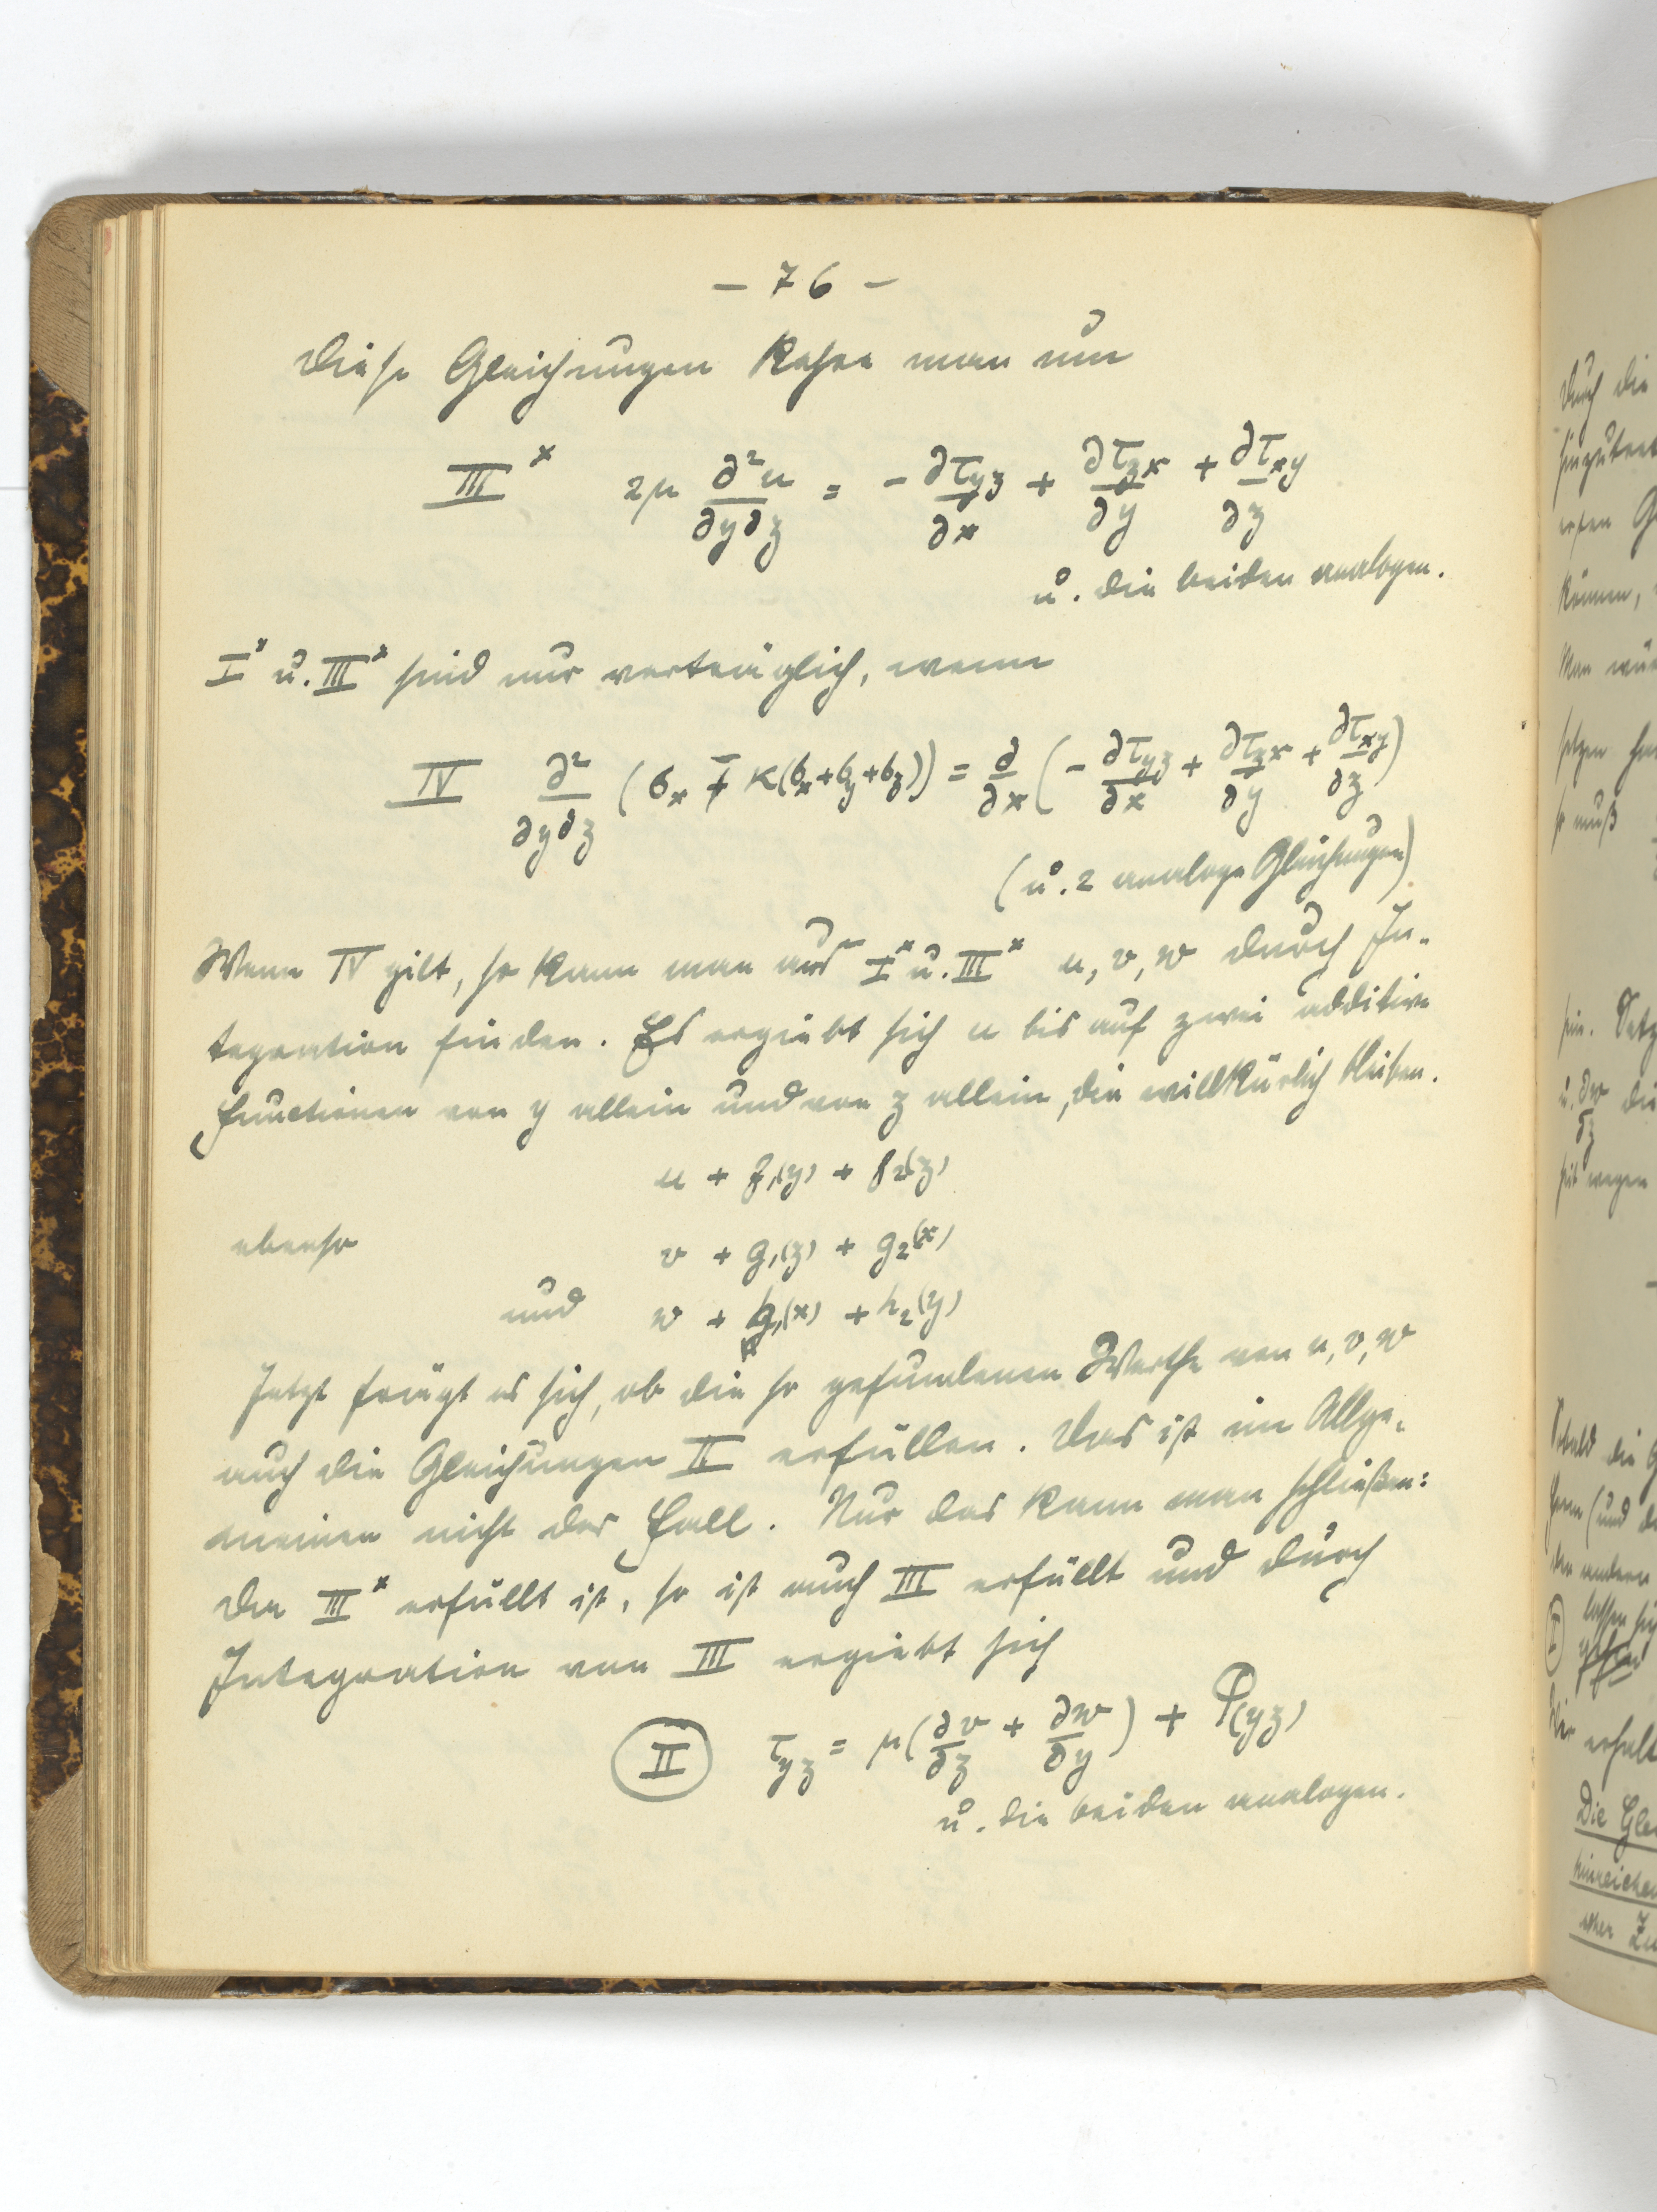 – 76 –
Diese Gleichungen kehre man um
III* 2μ ∂²u/∂y∂z = – ∂τyz/∂x + ∂τzx/∂y + ∂τxy/∂z
u. die beiden analogen.
I* u. III* sind nur verträglich, wenn
IV ∂²/∂y∂z (σx – κ(σx+σy+σz)) = ∂/∂x (– ∂τyz/∂x + ∂τzx/∂y + ∂τxy/∂z)
(u. 2 analoge Gleichungen)
Wenn IV gilt, so kann man aus I* u. III* u, v, w durch In-
tegration finden. Es ergiebt sich u bis auf zwei additive
Functionen von y allein und von z allein, die willkürlich bleiben.
u + f₁(y) + f₂(z)
ebenso v + g₁(z) + g₂(x)
und w + h₁(x) + h₂(y)
Jetzt frägt es sich, ob die so gefundenen Werthe von u, v, w
auch die Gleichungen II erfüllen. Das ist im Allge-
meinen nicht der Fall. Nur das kann man schließen:
da III* erfüllt ist, so ist auch III erfüllt und durch
Integration von III ergiebt sich
II τyz = μ(∂v/∂z + ∂w/∂y) + φ(yz)
u. die beiden analogen.
durch die
erfen
können,
Man
so muß
sein.
u. ∂w/∂z die
wegen
die
(und
andern
I lassen
Die